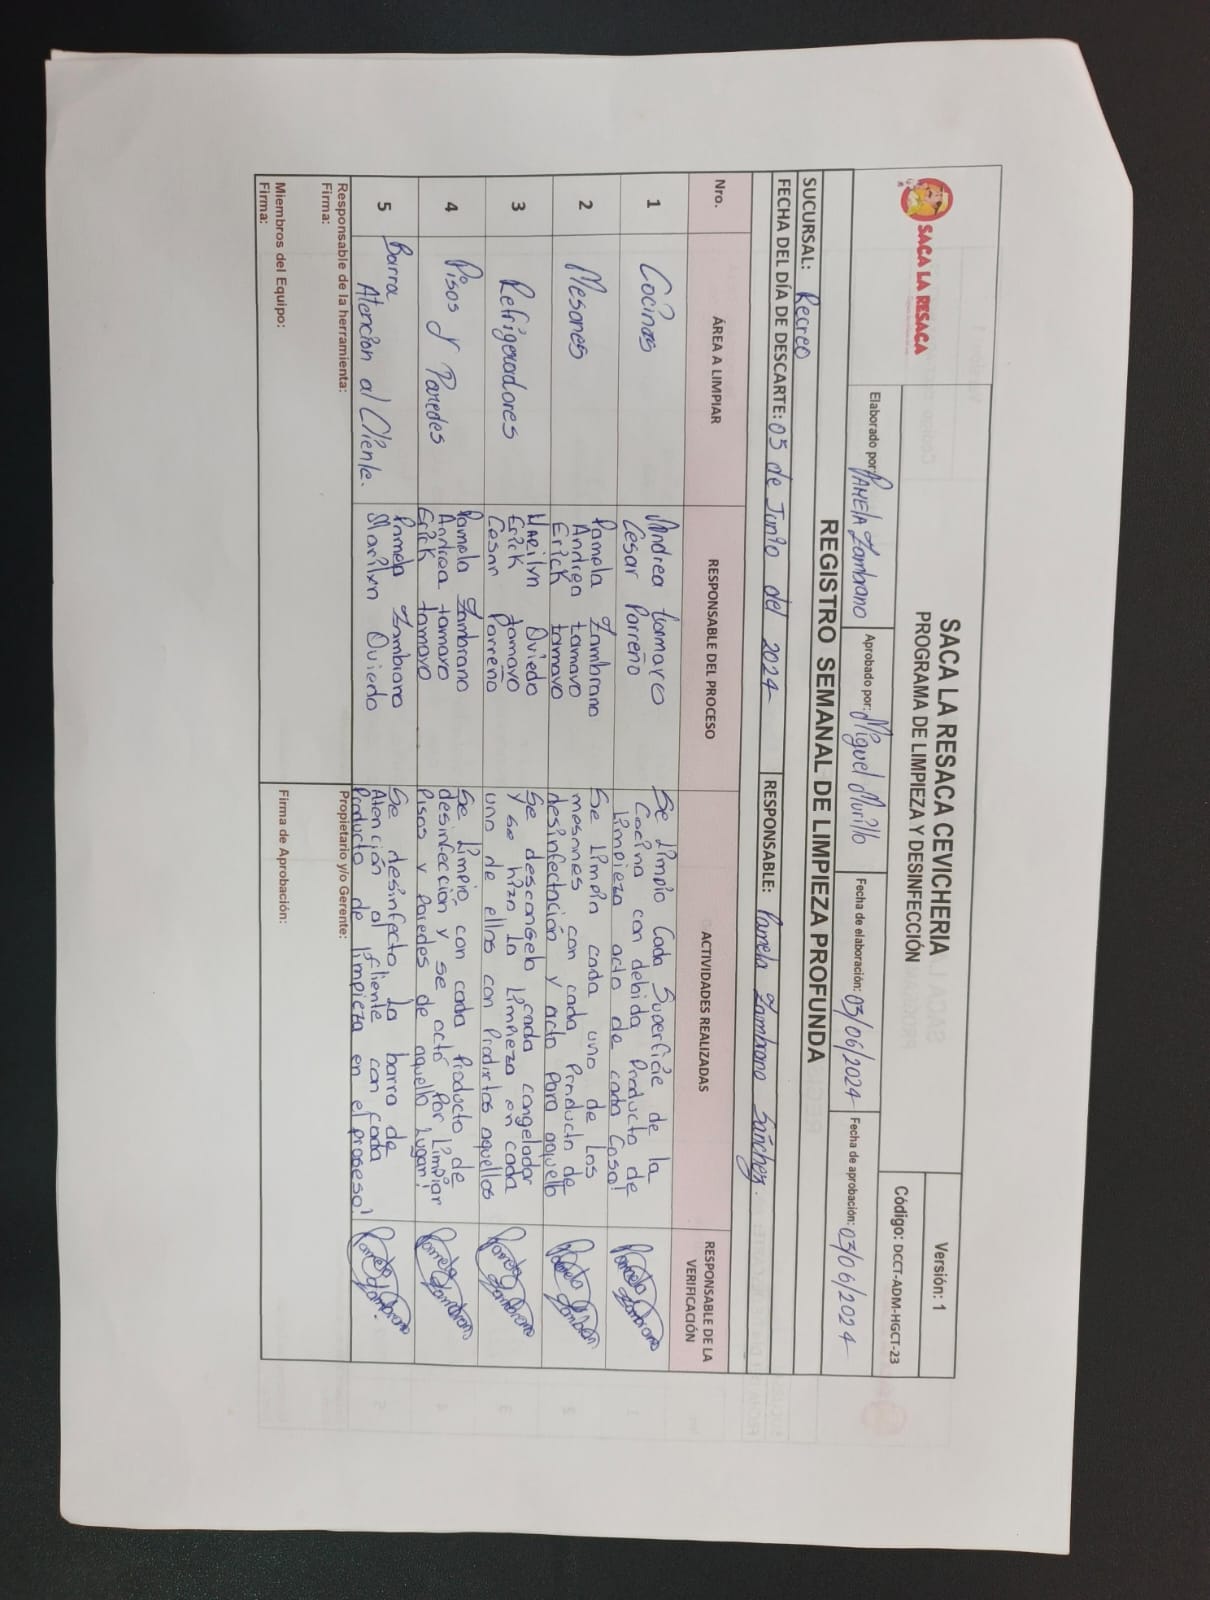 SACA LA RESACA
SACA LA RESACA CEVICHERIA
PROGRAMA DE LIMPIEZA Y DESINFECCIÓN
Versión: 1
Código: DCCT-ADM-HGCT-23
Elaborado por: PAMELA Zambrano
Aprobado por: Miguel Murillo
Fecha de elaboración: 03/06/2024
Fecha de aprobación: 03/06/2024
REGISTRO SEMANAL DE LIMPIEZA PROFUNDA
SUCURSAL: Recreo
FECHA DEL DÍA DE DESCARTE: 05 de Junio del 2024
RESPONSABLE: Pamela Zambrano Sánchez.
Nro.
ÁREA A LIMPIAR
RESPONSABLE DEL PROCESO
ACTIVIDADES REALIZADAS
RESPONSABLE DE LA
VERIFICACIÓN
1
Cocinas
Andrea tamayo
Cesar Parreño
Se limpio Cada Superficie de la
Cocina con debida Producto de
limpieza acto de cada Cosa!
Pamela Zambrano
2
Mesones
Pamela Zambrano
Andrea tamayo
Erick tamayo
Se limpia cada uno de los
mesones con cada Producto de
desinfectación y acto Para aquello
Pamela Zambrano
3
Refrigeradores
Marilyn Oviedo
Erick tamayo
Cesar Parreño
Se descongelo cada congelador
y se hizo la limpieza en cada
uno de ellos con Productos aquellos
Pamela Zambrano
4
Pisos y Paredes
Pamela Zambrano
Andrea tamayo
Erick tamayo
Se limpió con cada Producto de
desinfección y se actó Por limpiar
Pisos y Paredes de aquello lugar!
Pamela Zambrano
5
Barra
Atención al Cliente.
Pamela Zambrano
Marilyn Oviedo
Se desinfecto la barra de
Atención al Cliente con cada
Producto de limpieza en el proceso!
Pamela Zambrano
Responsable de la herramienta:
Firma:
Propietario y/o Gerente:
Miembros del Equipo:
Firma:
Firma de Aprobación: